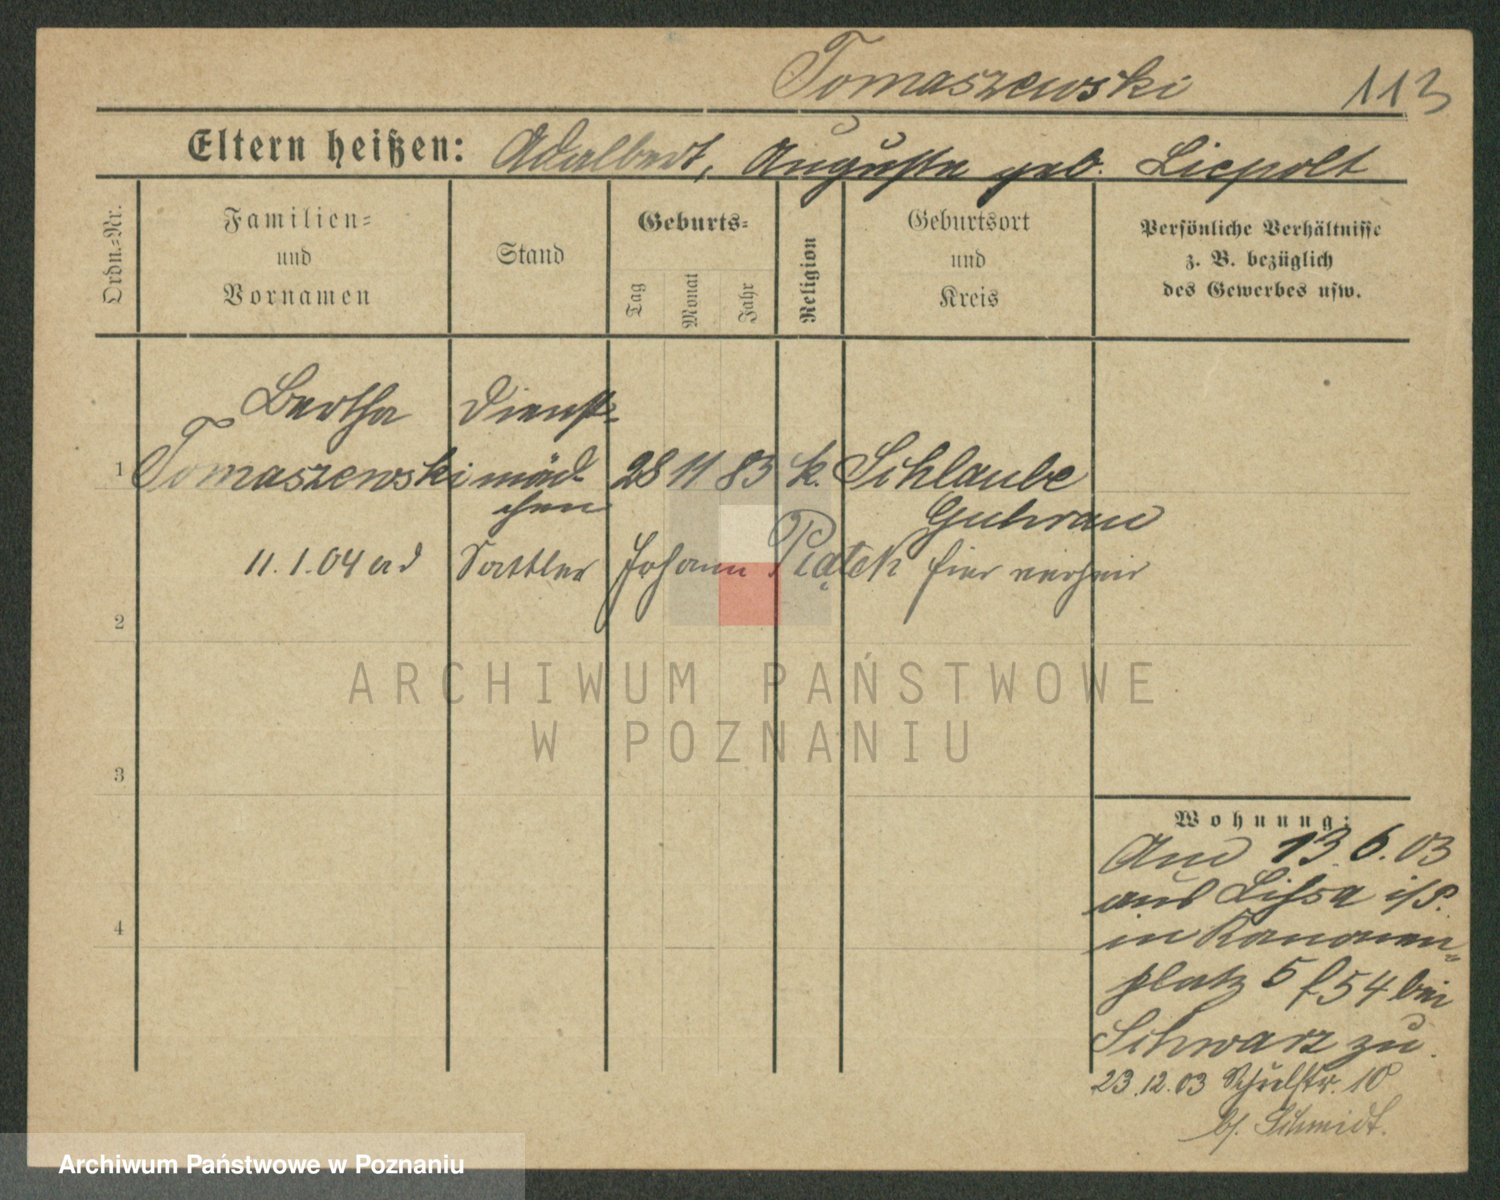 Tomaszewski 113
Eltern heißen: Adalbert, Auguste geb. Liepolt
Ordn.=Nr.
Familien=
und
Vornamen
Stand
Geburts=
Tag
Monat
Jahr
Religion
Geburtsort
und
Kreis
Persönliche Verhältnisse
z. B. bezüglich
des Gewerbes usw.
Bertha Dienst-
1 Tomaszewski mäd- 28 11 83 k. Schlaube
chen Guhrau
11.1.04 Sattler Johann Piątek hier verheir
2
3
4
Wohnung:
13.6.03
aus Lissa i/P.
in Kanonen-
platz 5 f54 bei
Schwarz zu.
23.12.03 Schulstr. 10
b/. Schmidt.
ARCHIWUM PAŃSTWOWE
W POZNANIU
Archiwum Państwowe w Poznaniu